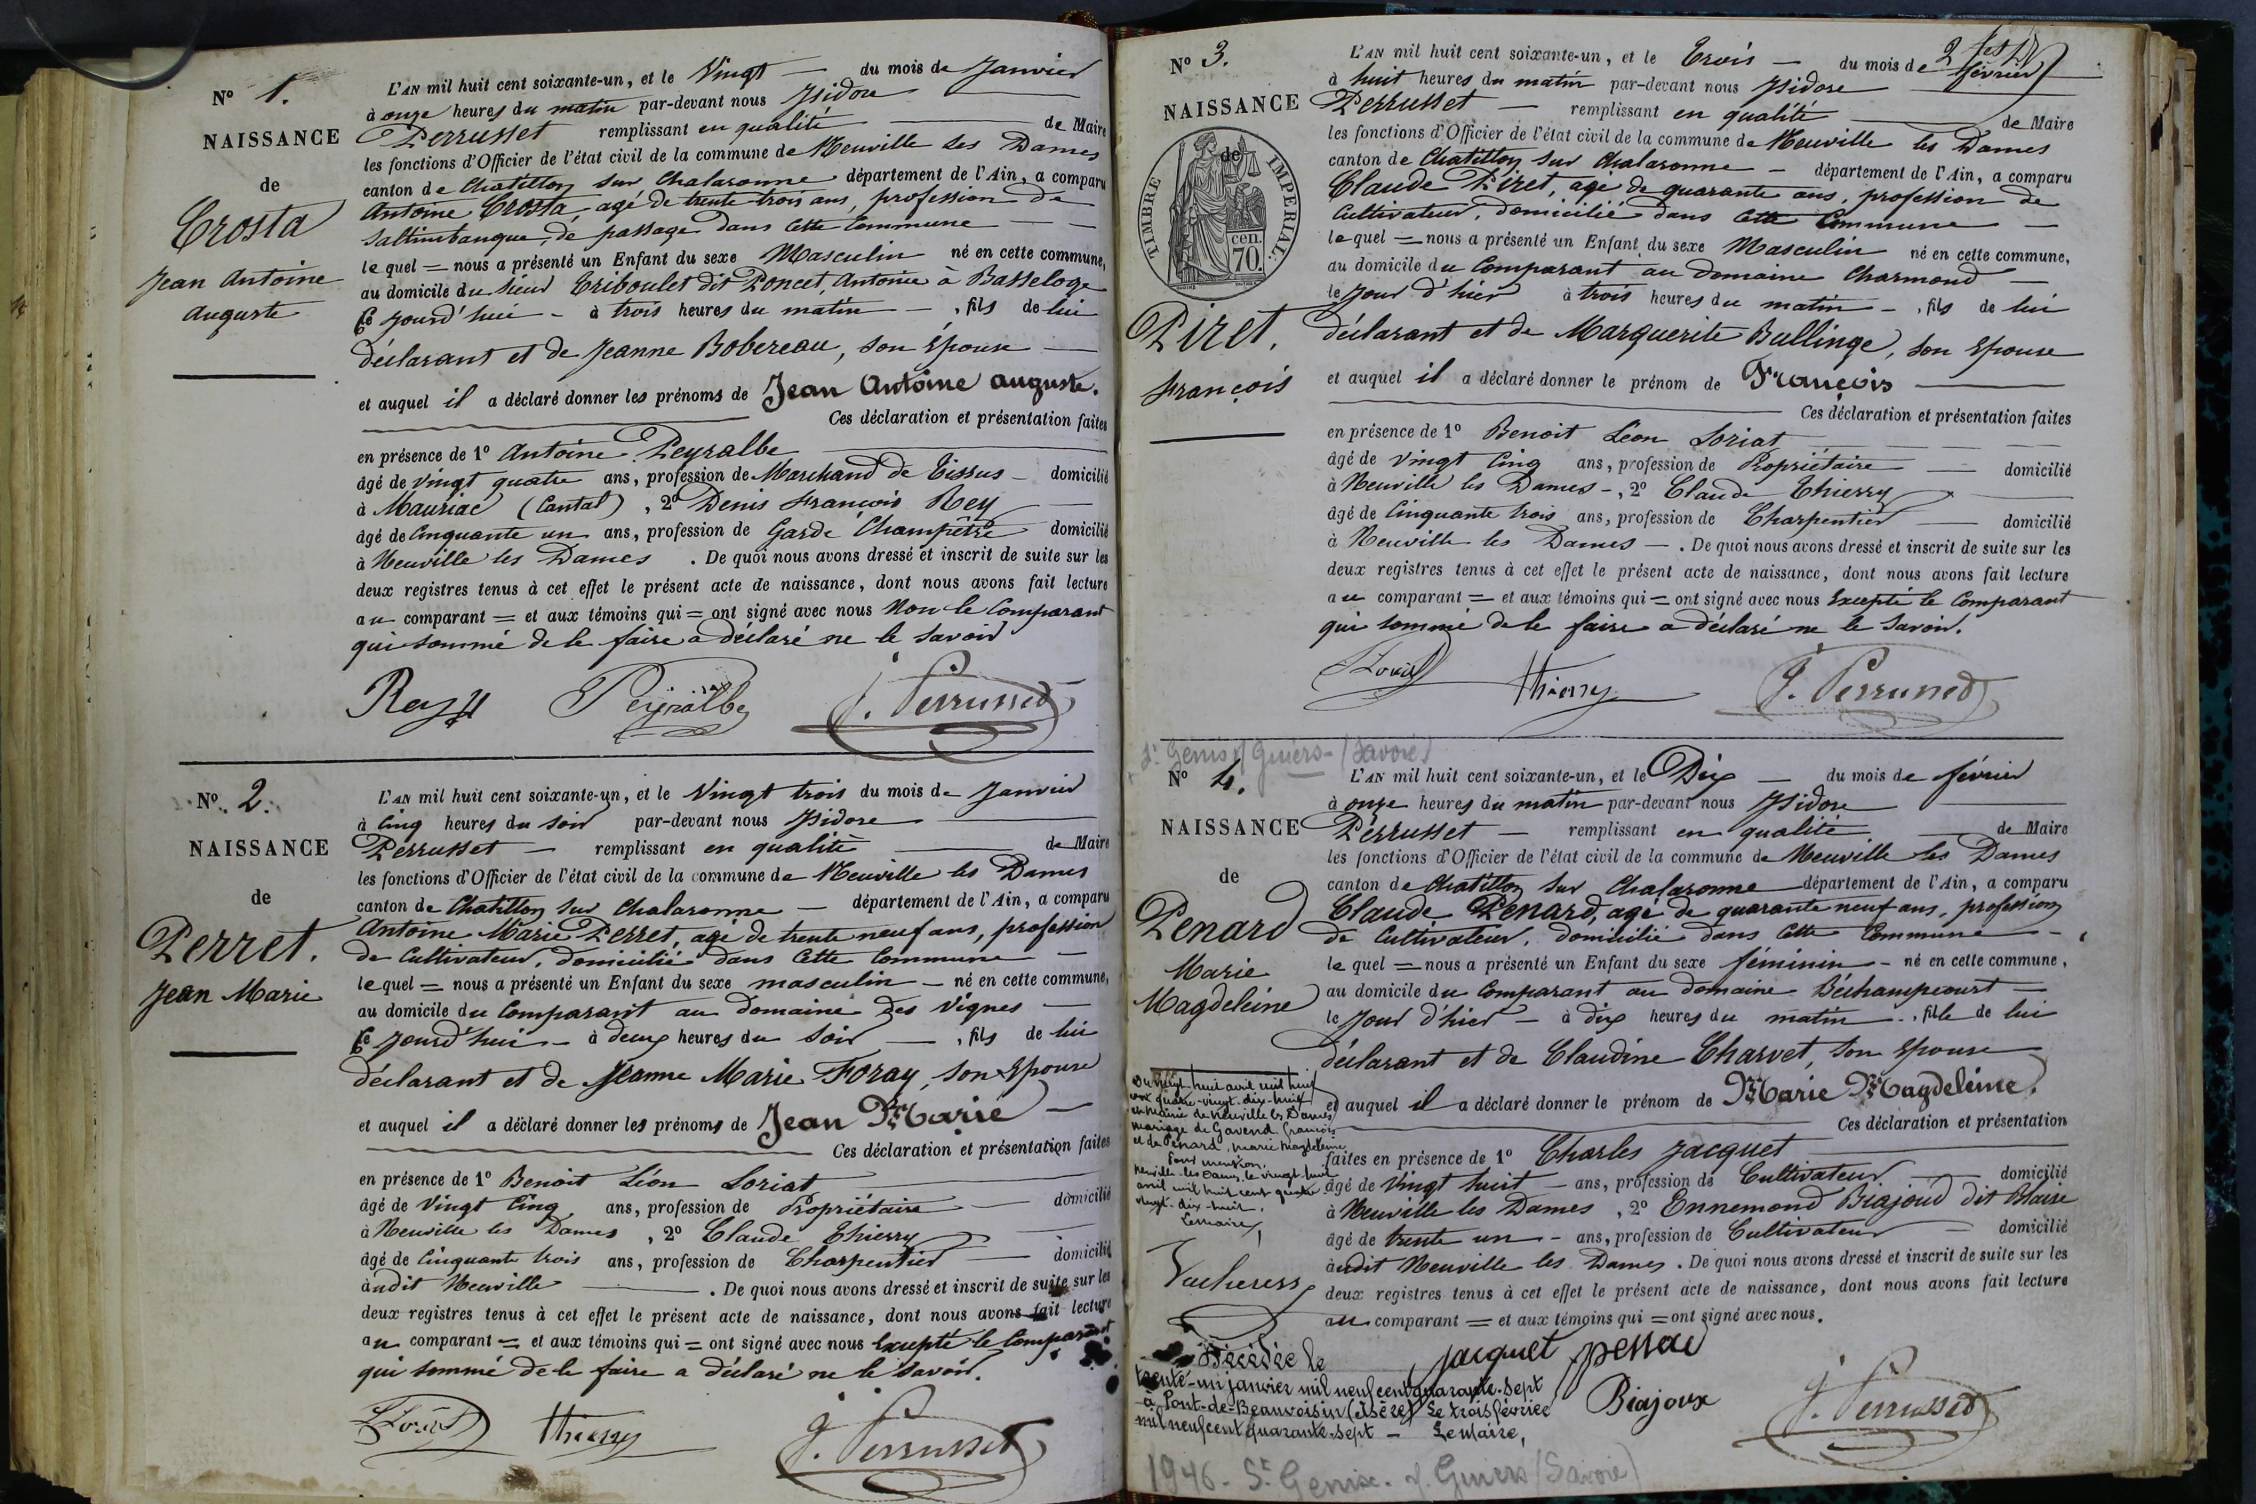 N° 1.
NAISSANCE
de
Crosta
Jean Antoine
Auguste
L'AN mil huit cent soixante-un, et le Vingt — du mois de Janvier
à onze heures du matin par-devant nous Isidore
Perrusset remplissant en qualité de Maire
les fonctions d'Officier de l'état civil de la commune de Neuville les Dames
canton de Chatillon sur Chalaronne département de l'Ain, a comparu
Antoine Crosta, agé de trente trois ans, profession de
Saltimbanque, de passage dans cette Commune
lequel = nous a présenté un Enfant du sexe Masculin né en cette commune,
au domicile du Sieur Triboulet dit Poncet, Antoine à Basseloge
Ce jourd'hui - à trois heures du matin - , fils de lui
déclarant et de Jeanne Bobereau, son Épouse
et auquel il a déclaré donner les prénoms de Jean Antoine Auguste.
Ces déclaration et présentation faites
en présence de 1° Antoine Peyralbe
âgé de vingt quatre ans, profession de Marchand de Tissus - domicilié
à Mauriac (Cantal) , 2° Denis François Rey
âgé de Cinquante un ans, profession de Garde Champêtre domicilié
à Neuville les Dames . De quoi nous avons dressé et inscrit de suite sur les
deux registres tenus à cet effet le présent acte de naissance, dont nous avons fait lecture
au comparant = et aux témoins qui = ont signé avec nous Non le Comparant
qui sommé de le faire a déclaré ne le savoir
Rey Peyralbe J. Perrusset
N° 2.
NAISSANCE
de
Perret.
Jean Marie
L'AN mil huit cent soixante-un, et le Vingt trois du mois de Janvier
à Cinq heures du soir par-devant nous Isidore
Perrusset — remplissant en qualité de Maire
les fonctions d'Officier de l'état civil de la commune de Neuville les Dames
canton de Chatillon sur Chalaronne — département de l'Ain, a comparu
Antoine Marie Perret, agé de trente neuf ans, profession
de Cultivateur, domicilié dans cette Commune —
lequel = nous a présenté un Enfant du sexe masculin — né en cette commune,
au domicile du Comparant au domaine des Vignes
Ce jourd'hui - à deux heures du soir — , fils de lui
déclarant et de Jeanne Marie Foray, son Epouse
et auquel il a déclaré donner les prénoms de Jean Marie —
Ces déclaration et présentation faites
en présence de 1° Benoit Léon Loriat
âgé de Vingt Cinq ans, profession de Propriétaire — domicilié
à Neuville les Dames , 2° Claude Thierry
âgé de Cinquante trois ans, profession de Charpentier — domicilié
àudit Neuville . De quoi nous avons dressé et inscrit de suite sur les
deux registres tenus à cet effet le présent acte de naissance, dont nous avons fait lecture
au comparant = et aux témoins qui = ont signé avec nous Excepté le Comparant
qui sommé de le faire a déclaré ne le savoir.
Thierry J. Perrusset
N° 3.
NAISSANCE
de
TIMBRE IMPERIAL.
70. cen.
Piret.
François
L'AN mil huit cent soixante-un, et le Trois — du mois de février
à huit heures du matin par-devant nous Isidore
Perrusset — remplissant en qualité de Maire
les fonctions d'Officier de l'état civil de la commune de Neuville les Dames
canton de Chatillon sur Chalaronne — département de l'Ain, a comparu
Claude Piret, agé de quarante ans, profession de
Cultivateur, domicilié dans cette Commune —
lequel = nous a présenté un Enfant du sexe Masculin né en cette commune,
au domicile du Comparant au domaine Charmond —
le jour d'hier à trois heures du matin - , fils de lui
déclarant et de Marguerite Bullinge, son Epouse
et auquel il a déclaré donner le prénom de François
Ces déclaration et présentation faites
en présence de 1° Benoit Léon Loriat
âgé de Vingt Cinq ans, profession de Propriétaire — domicilié
à Neuville les Dames - , 2° Claude Thierry
âgé de Cinquante trois ans, profession de Charpentier — domicilié
à Neuville les Dames — . De quoi nous avons dressé et inscrit de suite sur les
deux registres tenus à cet effet le présent acte de naissance, dont nous avons fait lecture
au comparant = et aux témoins qui = ont signé avec nous Excepté le Comparant
qui sommé de le faire a déclaré ne le savoir.
Thierry J. Perrusset
St Genis s/ Guiers - (Savoie)
N° 4.
NAISSANCE
de
Penard
Marie
Magdeleine
L'AN mil huit cent soixante-un, et le Dix — du mois de février
à onze heures du matin par-devant nous Isidore
Perrusset — remplissant en qualité de Maire
les fonctions d'Officier de l'état civil de la commune de Neuville les Dames
canton de Chatillon sur Chalaronne département de l'Ain, a comparu
Claude Penard, agé de quarante neuf ans, profession
de Cultivateur, domicilié dans cette Commune -
lequel = nous a présenté un Enfant du sexe féminin - né en cette commune,
au domicile du Comparant au domaine Béchampcourt —
le jour d'hier - à dix heures du matin - , fille de lui
déclarant et de Claudine Charvet, son Epouse
et auquel il a déclaré donner le prénom de Marie Magdeleine.
Ces déclaration et présentation
faites en présence de 1° Charles Jacquet
âgé de Vingt huit — ans, profession de Cultivateur domicilié
à Neuville les Dames , 2° Ennemond Biajoud dit Blaise
âgé de trente un - ans, profession de Cultivateur domicilié
àudit Neuville les Dames . De quoi nous avons dressé et inscrit de suite sur les
deux registres tenus à cet effet le présent acte de naissance, dont nous avons fait lecture
au comparant = et aux témoins qui = ont signé avec nous.
Du vingt-huit avril mil huit
cent quatre-vingt-dix-huit
en mairie de Neuville les Dames
mariage de Gavend François
et de Penard, Marie Magdeleine
Pour mention.
Neuville-les-Dames, le vingt-huit
avril mil huit cent quatre
vingt-dix-huit.
Le Maire,
Jacquet
Biajoux J. Perrusset
Décédée le
trente-un janvier mil neuf cent quarante-sept
à Pont-de-Beauvoisin (Isère) Le trois février
mil neuf cent quarante-sept — Le Maire,
1946 - St Genix - s/ Guiers (Savoie)